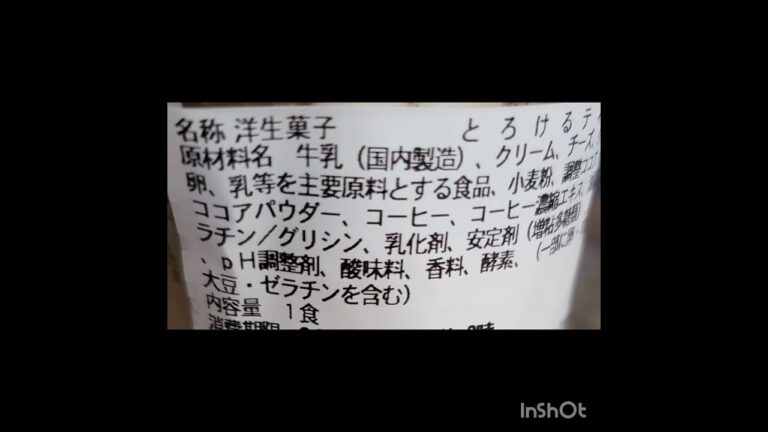 名称 洋生菓子 とろけるテ
原材料名 牛乳（国内製造）、クリーム、チーズ、
卵、乳等を主要原料とする食品、小麦粉、調整ココア
ココアパウダー、コーヒー、コーヒー濃縮エキス、
ラチン／グリシン、乳化剤、安定剤（増粘多糖類）、
、pH調整剤、酸味料、香料、酵素、（一部に卵・
大豆・ゼラチンを含む）
内容量 1食
消費期限
InShOt